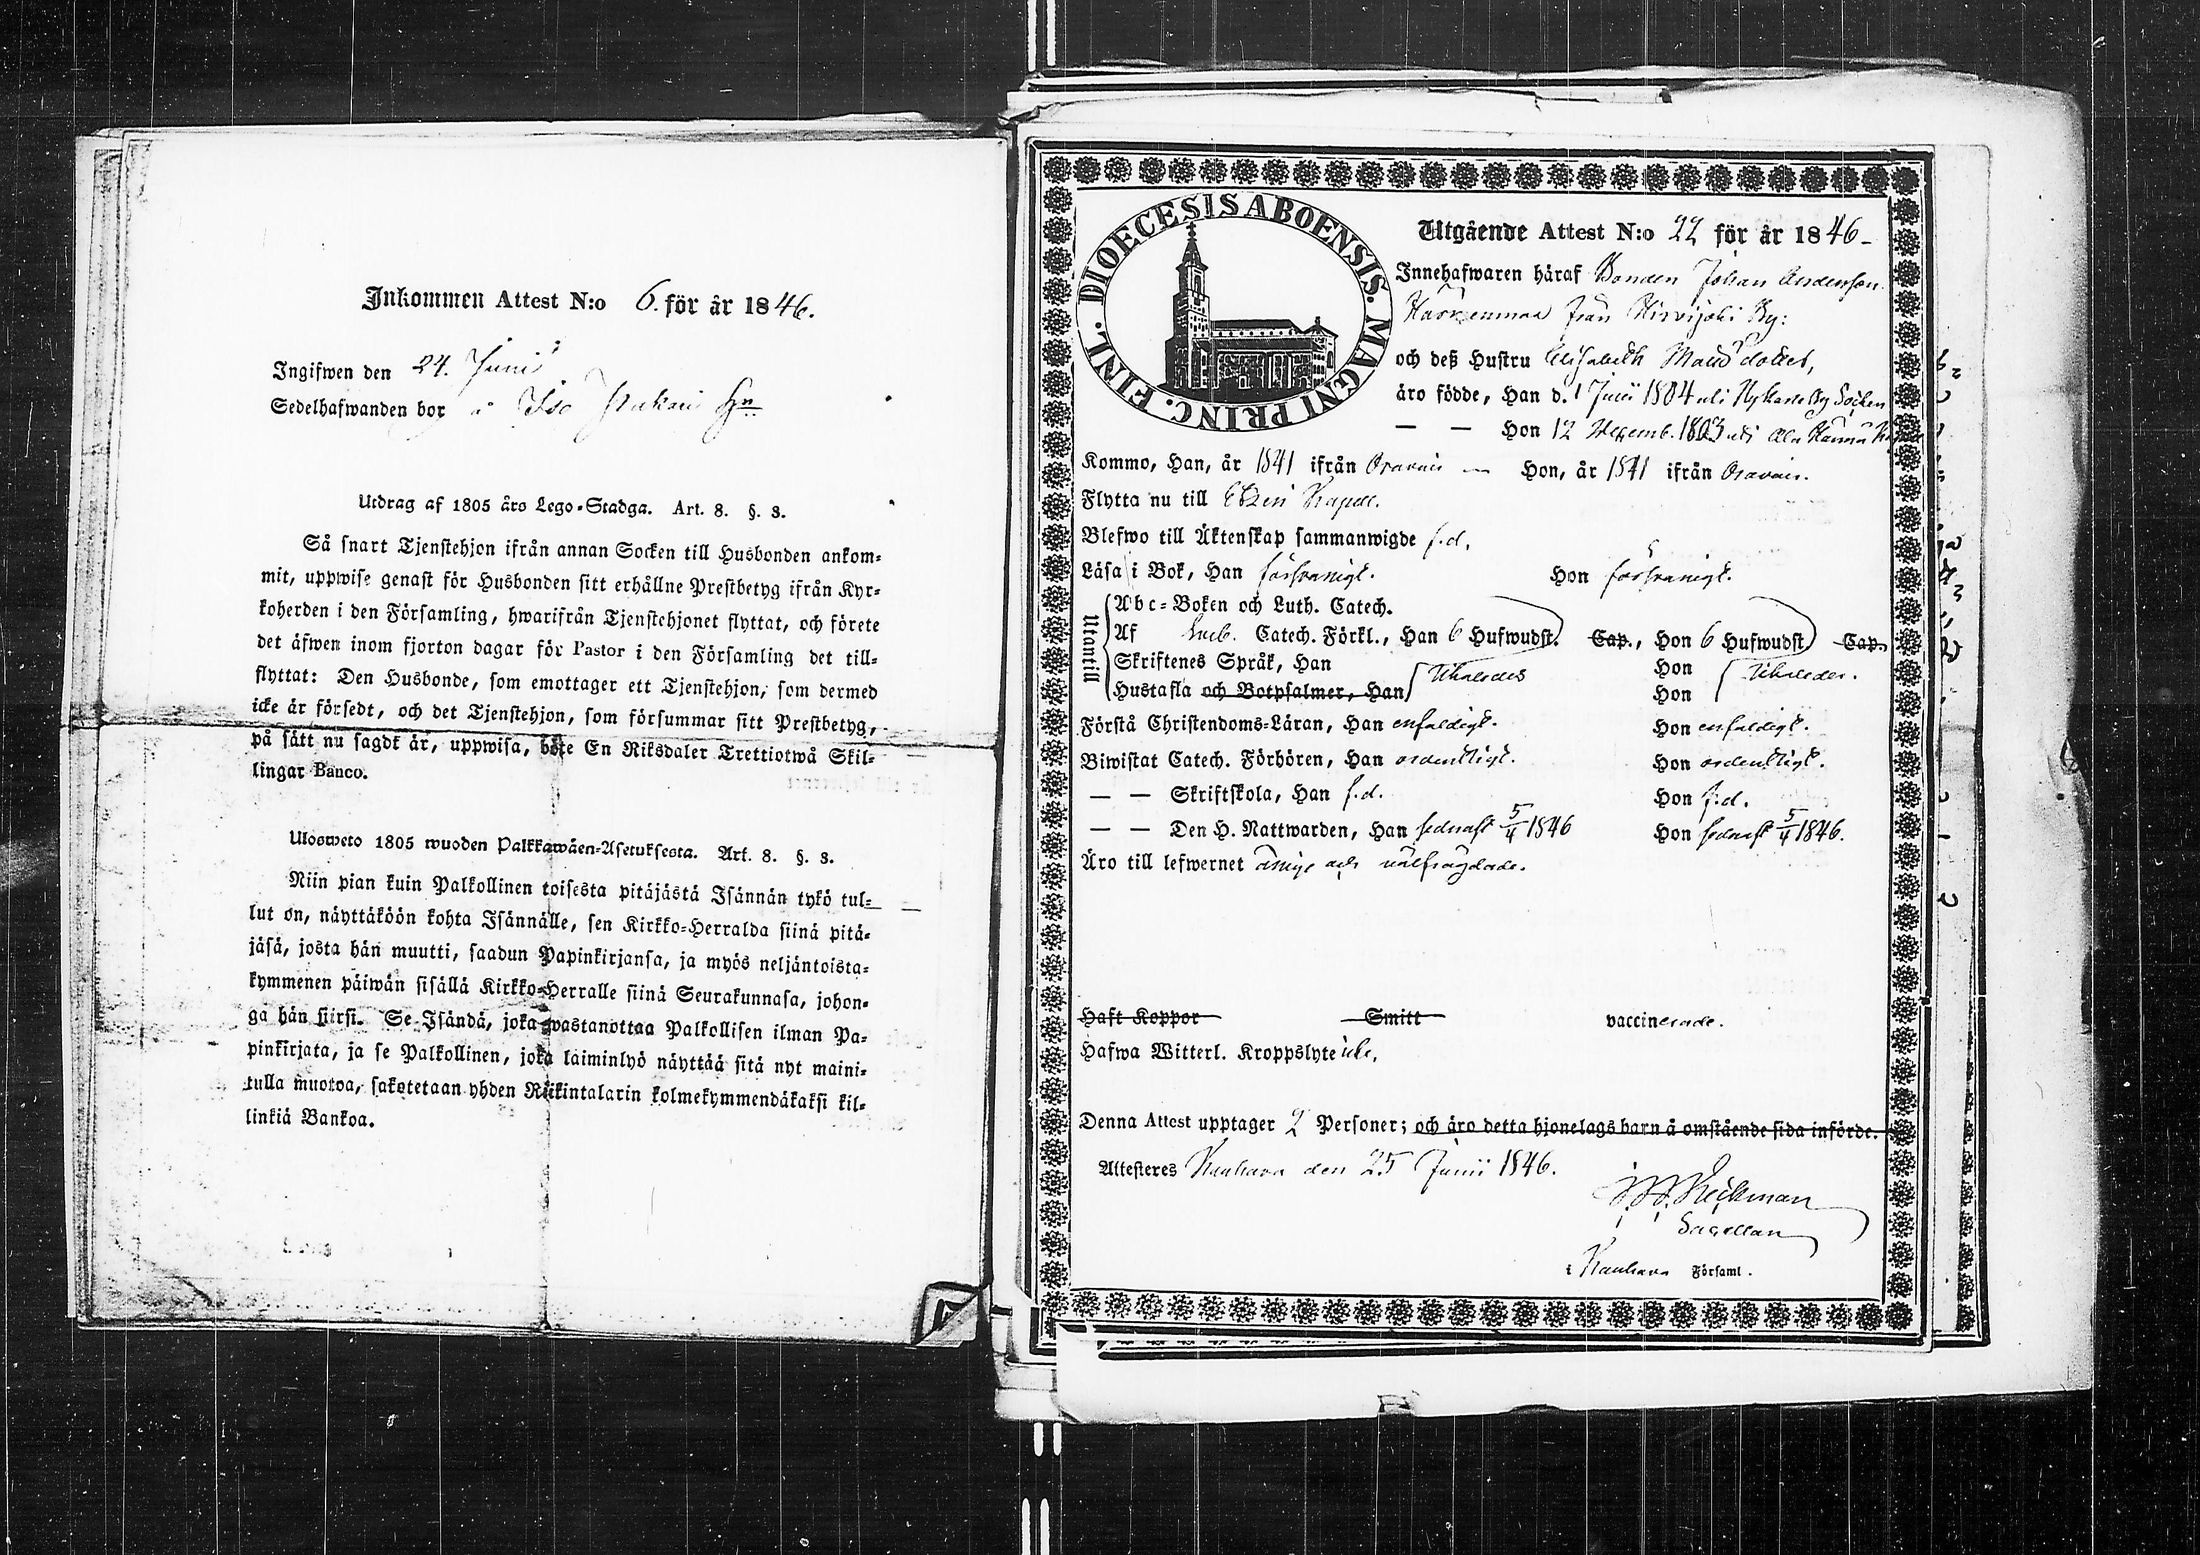 Inkommen Attest N:o 6. för år 1846.
Ingifwen den 24. Junii
Sedelhafwanden bor å Iso
Utdrag af 1805 års Lego-Stadga. Art. 8. §. 3.
Så snart Tjenstehjon ifrån annan Socken till Husbonden ankom-
mit, uppwise genast för Husbonden sitt erhållne Prestbetyg ifrån Kyr-
koherden i den Församling, hwarifrån Tjenstehjonet flyttat, och förete
det äfwen inom fjorton dagar för Pastor i den Församling det till-
flyttat: Den Husbonde, som emottager ett Tjenstehjon, som dermed
icke är försedt, och det Tjenstehjon, som försummar sitt Prestbetyg,
på sätt nu sagdt är, uppwisa, böte En Riksdaler Trettiotwå Skil-
lingar Banco.
Ulosweto 1805 wuoden Palkkawäen-Asetuksesta. Art. 8. §. 3.
Niin pian kuin Palkollinen toisesta pitäjästä Isännän tykö tul-
lut on, näyttäköön kohta Isännälle, sen Kirkko-Herralda siinä pitä-
jäsä, josta hän muutti, saadun Papinkirjansa, ja myös neljäntoista-
kymmenen päiwän sisällä Kirkko-Herralle siinä Seurakunnasa, johon-
ga hän siirsi. Se Isändä, joka wastanottaa Palkollisen ilman Pa-
pinkirjata, ja se Palkollinen, joka laiminlyö näyttää sitä nyt maini-
tulla muotoa, sakotetaan yhden Riikintalarin kolmekymmendäkaksi kil-
linkiä Bankoa.
DIOECESIS ABOENSIS. MAGNI PRINC. FINL.
Utgående Attest N:o 22 för år 1846-
Innehafwaren häraf Bonden Johan Andersson
från Hirvijoki By:
och deß Hustru Elisabeth Matsdotter,
äro födde, Han d. 1 Junii 1804 uti Nykarleby Socken
— — Hon 12 Decemb. 1803 uti Ala Härmä
Kommo, Han, år 1841 ifrån Oravais — Hon, år 1841 ifrån Oravais.
Flytta nu till Etseri Kapell.
Blefwo till Äktenskap sammanwigde f.d.
Läsa i Bok, Han försvarligt. Hon försvarligt.
Utantill
Abc-Boken och Luth. Catech.
Af Sveb. Catech. Förkl., Han 6 Hufwudst. Cap., Hon 6 Hufwudst Cap.
Skriftenes Språk, Han Hon
Hustafla och Botpsalmer, Han Hon
Förstå Christendoms-Läran, Han enfaldigt. Hon enfaldigt.
Biwistat Catech. Förhören, Han ordentligt. Hon ordentligt.
— — Skriftskola, Han f.d. Hon f.d.
— — Den H. Nattwarden, Han sednast 5/4 1846 Hon sednast 5/4 1846.
Äro till lefwernet ärlige och välfrägdade.
Haft Koppor Smitt vaccinerade.
Hafwa Witterl. Kroppslyte icke.
Denna Attest upptager 2 Personer; och äro detta hjonelags barn å omstående sida införde.
Attesteres Kauhava den 25 Junii 1846.
Sacellan
i Kauhava Församl.